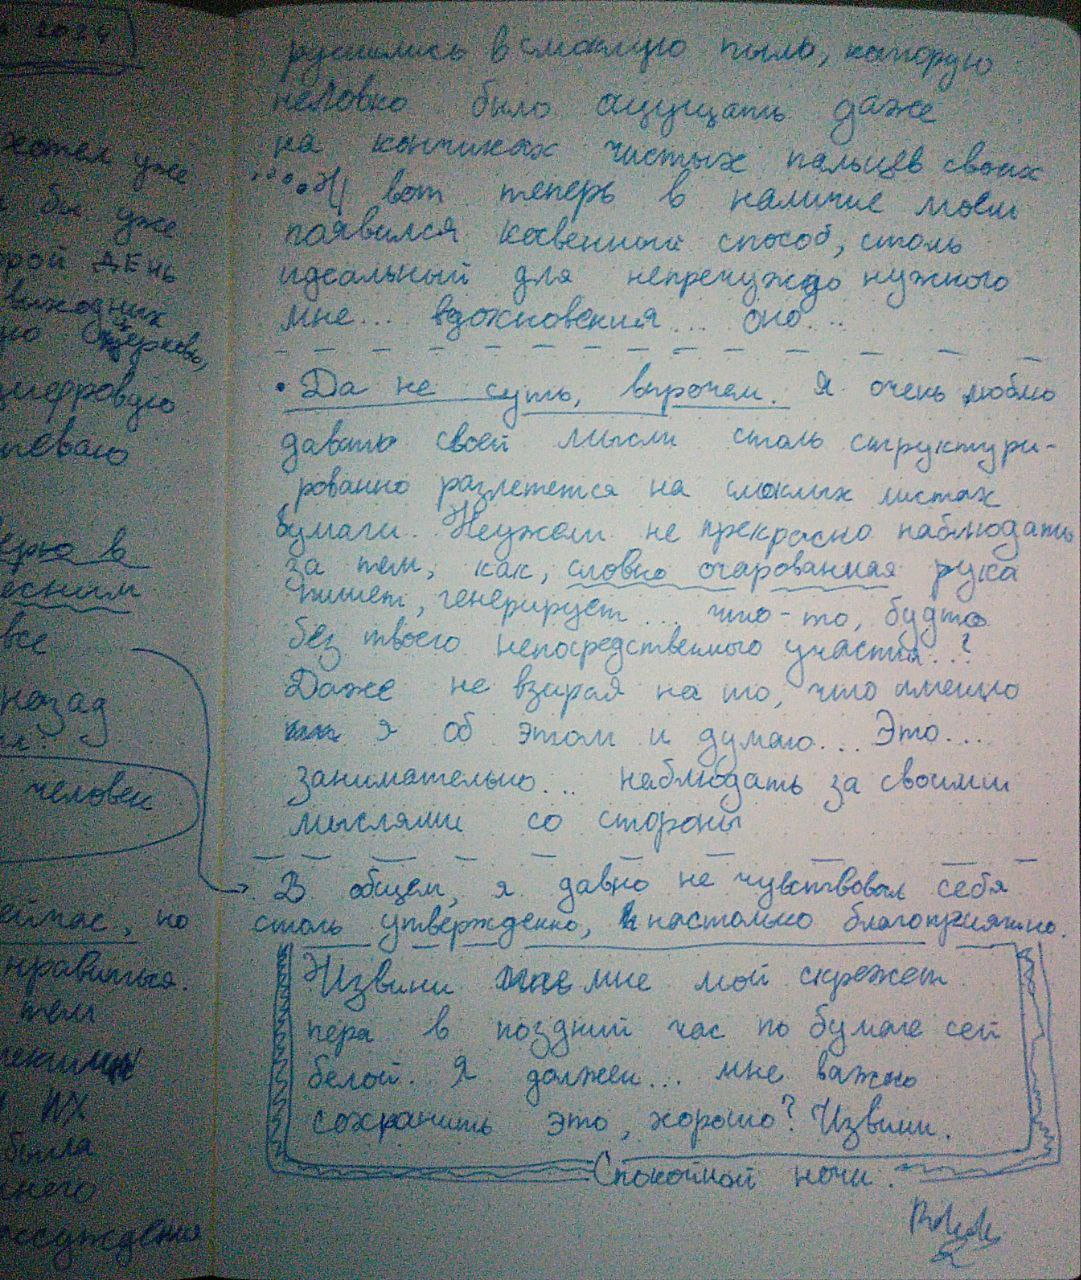 2024
хотел уже
бы уже
рой ДЕНЬ
выходных
церковь,
цифровую
певаю
рю в
есним
все
назад
человек
ейчас, но
нравиться.
тем
их
была
него
рассуждения
рушились в смоклую пыль, которую
неловко было ощущать даже
на кончиках чистых пальцев своих
....И вот теперь в наличие моём
появился косвенный способ, столь
идеальный для непренуждо нужного
мне... вдохновения... оно...
• Да не суть, впрочем. Я очень люблю
давать своей мысли столь структури-
рованно разлетется на смоклых листах
бумаги. Неужели не прекрасно наблюдать
за тем, как, словно очарованная рука
пишет, генерирует... что-то, будто
без твоего непосредственного участия..?
Даже не взирая на то, что именно
я об этом и думаю... Это...
занимательно... наблюдать за своими
мыслями со стороны
В общем, я давно не чувствовал себя
столь утвержденно, настолько благоприятно.
Извини мне мой скрежет
пера в поздний час по бумаге сей
белой. Я должен... мне важно
сохранить это, хорошо? Извини.
Спокойной ночи.